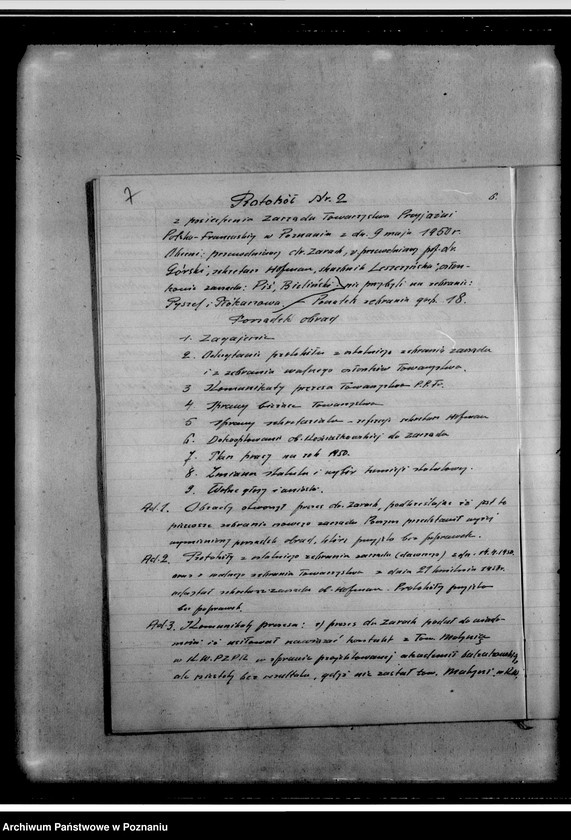 7
Protokół Nr. 2
6.
z posiedzenia Zarządu Towarzystwa Przyjaźni
Polsko-Francuskiej w Poznaniu z dn. 9 maja 1950 r.
Obecni: przewodniczący dr. Zarach, v-przewodniczący prof. dr.
Górski, sekretarz Hofman, skarbnik Leszczyńska, człon-
kowie zarządu: Piś, Bieliński, nie przybyli na zebranie:
Początek zebrania godz. 18.
Porządek obrad
1. Zagajenie
2. Odczytanie protokołów z ostatniego zebrania zarządu
i z zebrania walnego członków Towarzystwa.
3 Komunikaty prezesa Towarzystwa P.Fr.
4 Sprawy bieżące Towarzystwa
5 sprawy sekretariatu - referuje sekretarz Hofman
6. Dokooptowanie ob. do zarządu
7. Plan pracy na rok 1950.
8. Zmiana statutu i wybór komisji statutowej.
9. Wolne głosy i wnioski.
Ad. 1. Obrady otworzył prezes dr. Zarach, podkreślając iż jest to
pierwsze zebranie nowego zarządu. Prezes przedstawił wyżej
wymieniony porządek obrad, który przyjęto bez poprawek.
Ad. 2. Protokóły z ostatniego zebrania zarządu (dawnego) z dn.
oraz z walnego zebrania Towarzystwa z dnia 27 kwietnia
odczytał sekretarz zarządu ob. Hofman. Protokóły przyjęto
bez poprawek.
Ad 3. Komunikaty prezesa: a) prezes dr. Zarach podał do wiado-
mości iż usiłował nawiązać kontakt z Tow.
w K.W. PZPR w sprawie projektowanej akademii balzakowskiej,
ale niestety bez rezultatu, gdyż nie zastał tow.
Archiwum Państwowe w Poznaniu